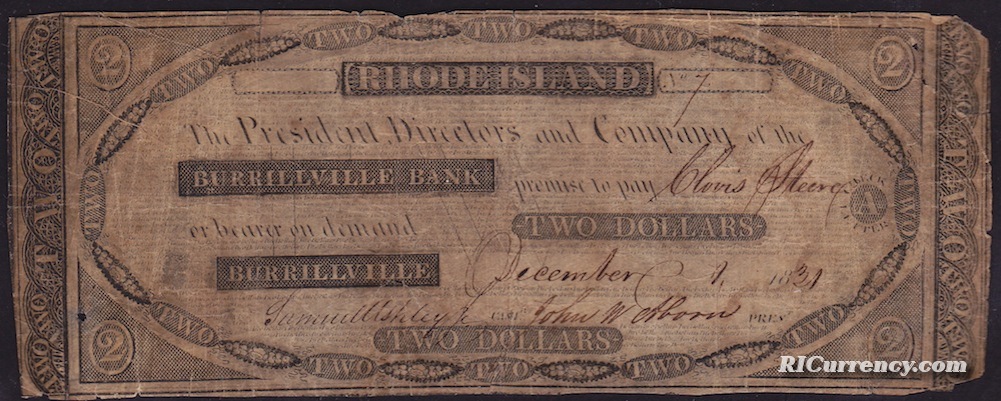 TWO TWO TWO
2 TWO TWO 2
RHODE ISLAND No 7
The President, Directors and Company of the
BURRILLVILLE BANK promise to pay Clovis
or bearer on demand TWO DOLLARS
A
BURRILLVILLE December 1, 1831
Samuel Ashley Jr CASHr John W Osborn PREST
TWO DOLLARS
2 TWO TWO 2
TWO TWO TWO
TWO
TWO
RICurrency.com